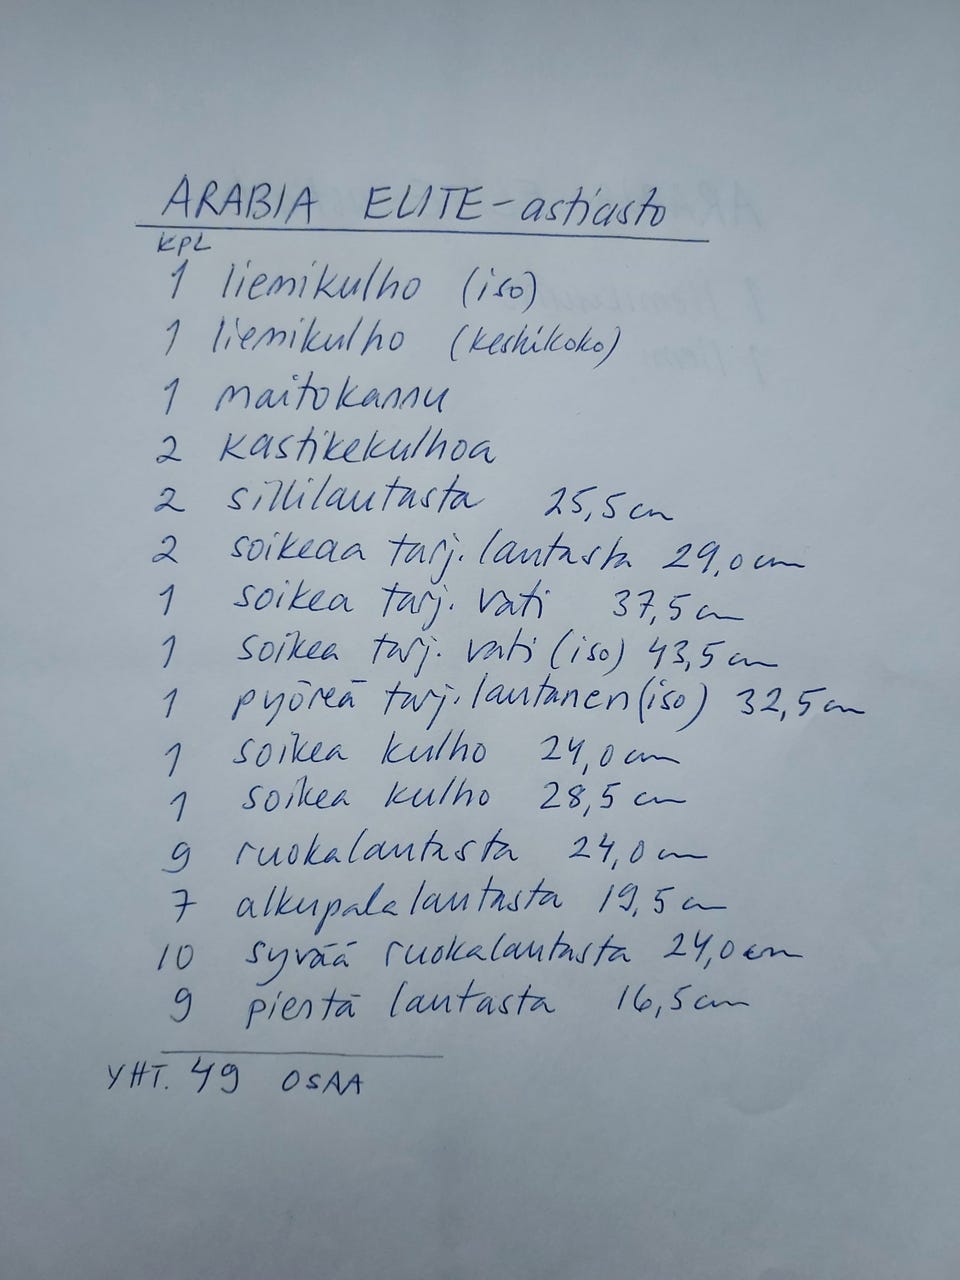 ARABIA ELITE-astiasto
KPL
1 liemikulho (iso)
1 liemikulho (keskikoko)
1 maitokannu
2 kastikekulhoa
2 sillilautasta 25,5 cm
2 soikeaa tarj. lautasta 29,0 cm
1 soikea tarj. vati 37,5 cm
1 soikea tarj. vati (iso) 43,5 cm
1 pyöreä tarj. lautanen (iso) 32,5 cm
1 soikea kulho 24,0 cm
1 soikea kulho 28,5 cm
9 ruokalautasta 24,0 cm
7 alkupalalautasta 19,5 cm
10 syvää ruokalautasta 24,0 cm
9 pientä lautasta 16,5 cm
YHT. 49 OSAA